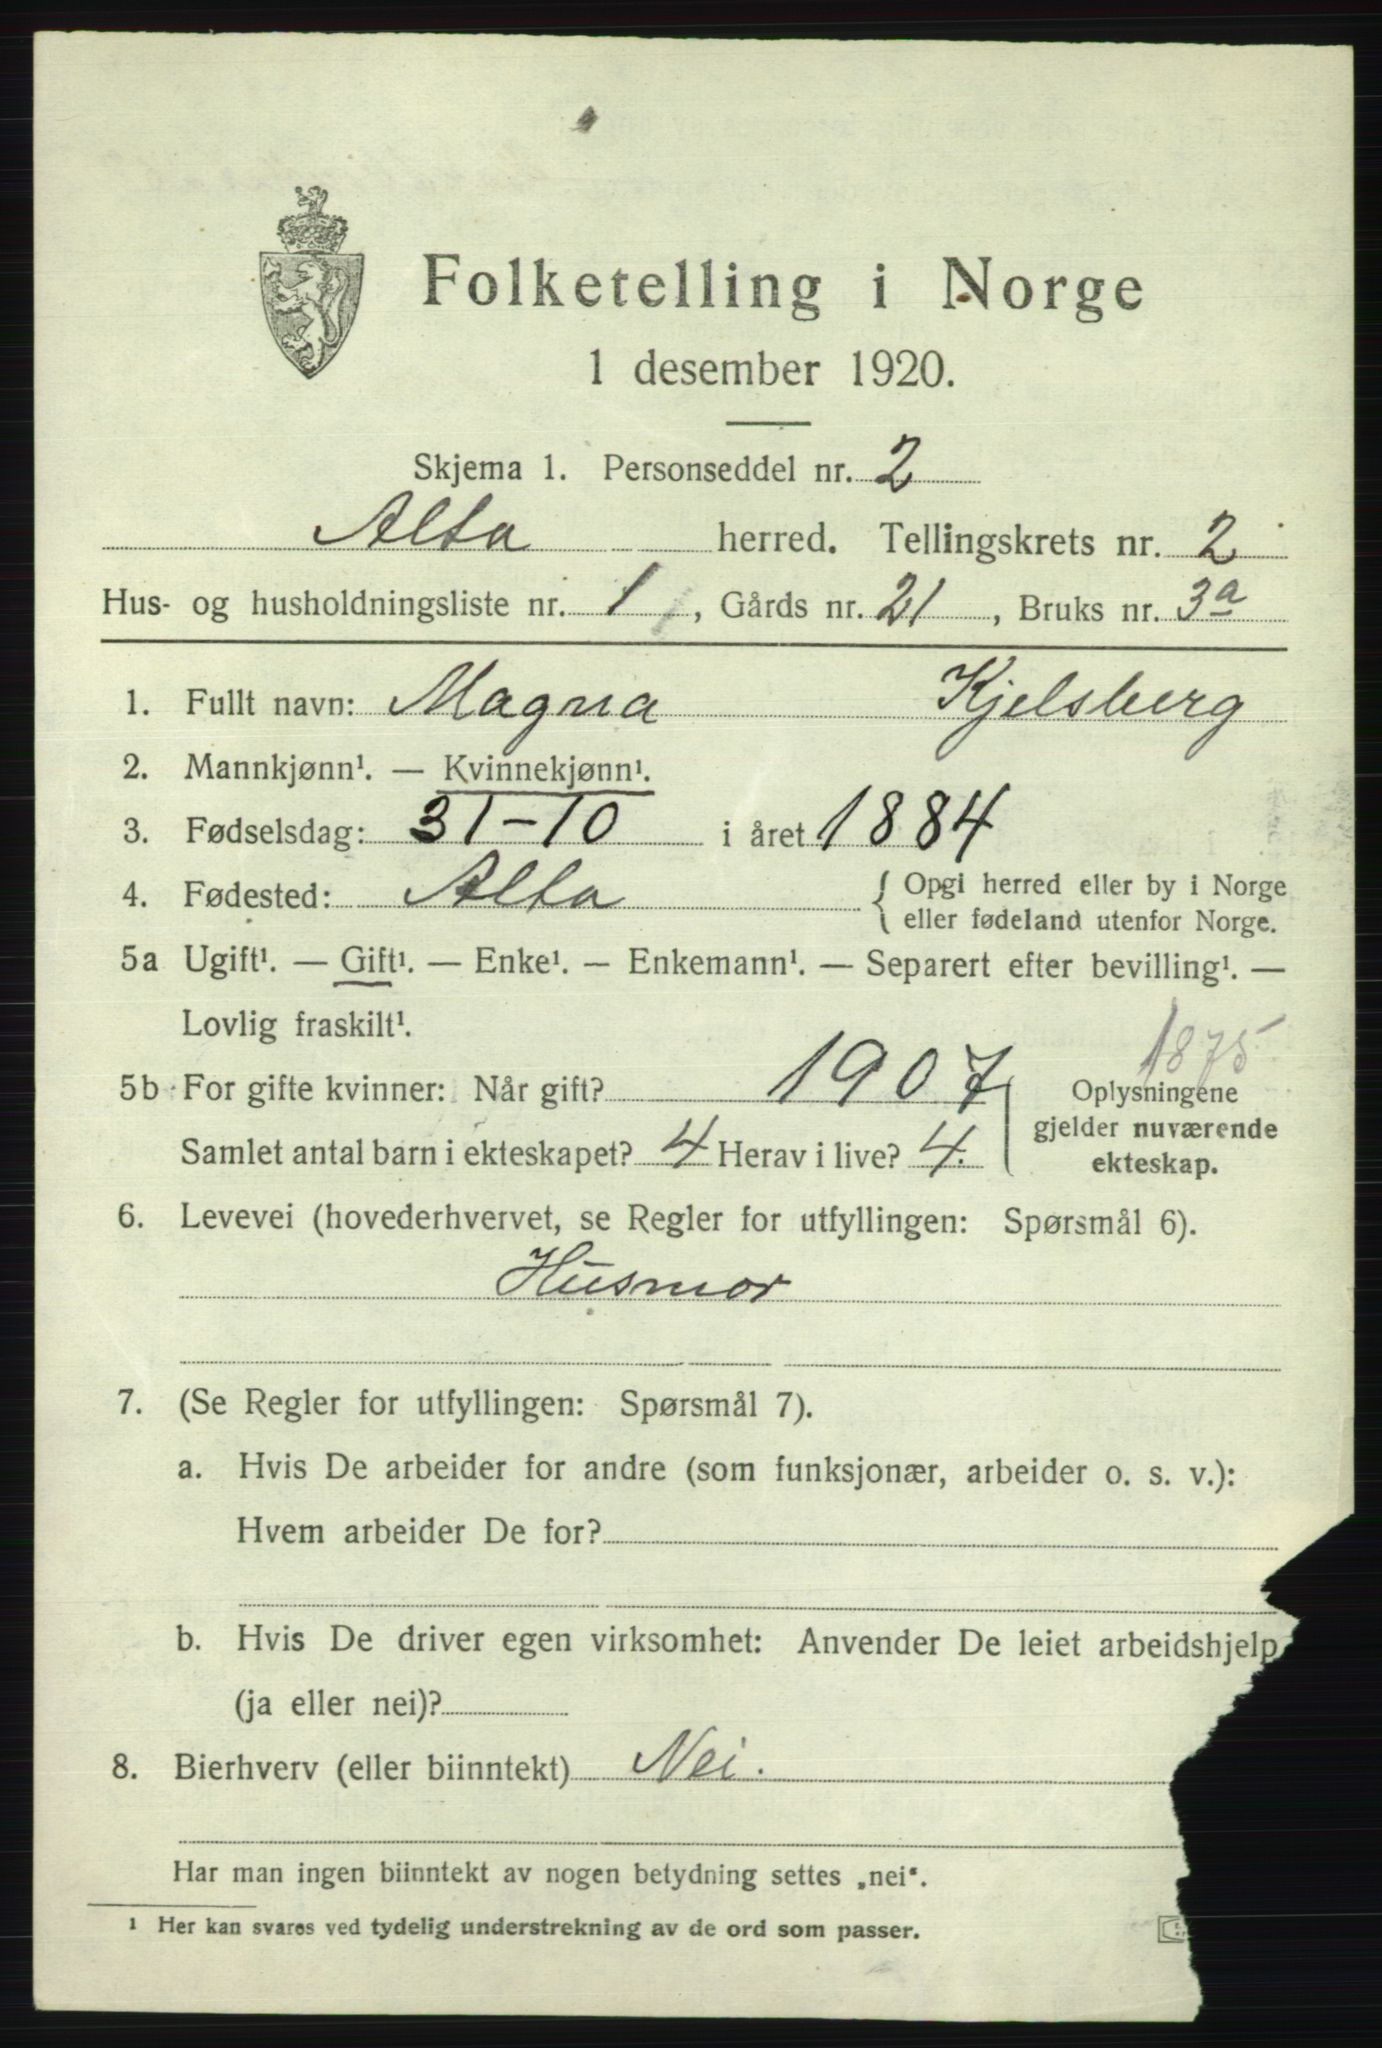 Folketelling i Norge
1 desember 1920.
Skjema 1. Personseddel nr. 2
Alta herred. Tellingskrets nr. 2
Hus- og husholdningsliste nr. 1, Gårds nr. 21, Bruks nr. 3a
1. Fullt navn: Magna Kjelsberg
2. Mannkjønn¹. — Kvinnekjønn¹.
3. Fødselsdag: 31-10 i året 1884
4. Fødested: Alta { Opgi herred eller by i Norge
eller fødeland utenfor Norge.
5a Ugift¹. — Gift¹. — Enke¹. — Enkemann¹. — Separert efter bevilling¹. —
Lovlig fraskilt¹.
1875
5b For gifte kvinner: Når gift? 1907 Oplysningene
gjelder nuværende
Samlet antal barn i ekteskapet? 4 Herav i live? 4. ekteskap.
6. Levevei (hovederhvervet, se Regler for utfyllingen: Spørsmål 6).
Husmor
7. (Se Regler for utfyllingen: Spørsmål 7).
a. Hvis De arbeider for andre (som funksjonær, arbeider o. s. v.):
Hvem arbeider De for?
b. Hvis De driver egen virksomhet: Anvender De leiet arbeidshjelp
(ja eller nei)?
8. Bierhverv (eller biinntekt) Nei.
Har man ingen biinntekt av nogen betydning settes „nei“.
¹ Her kan svares ved tydelig understrekning av de ord som passer.